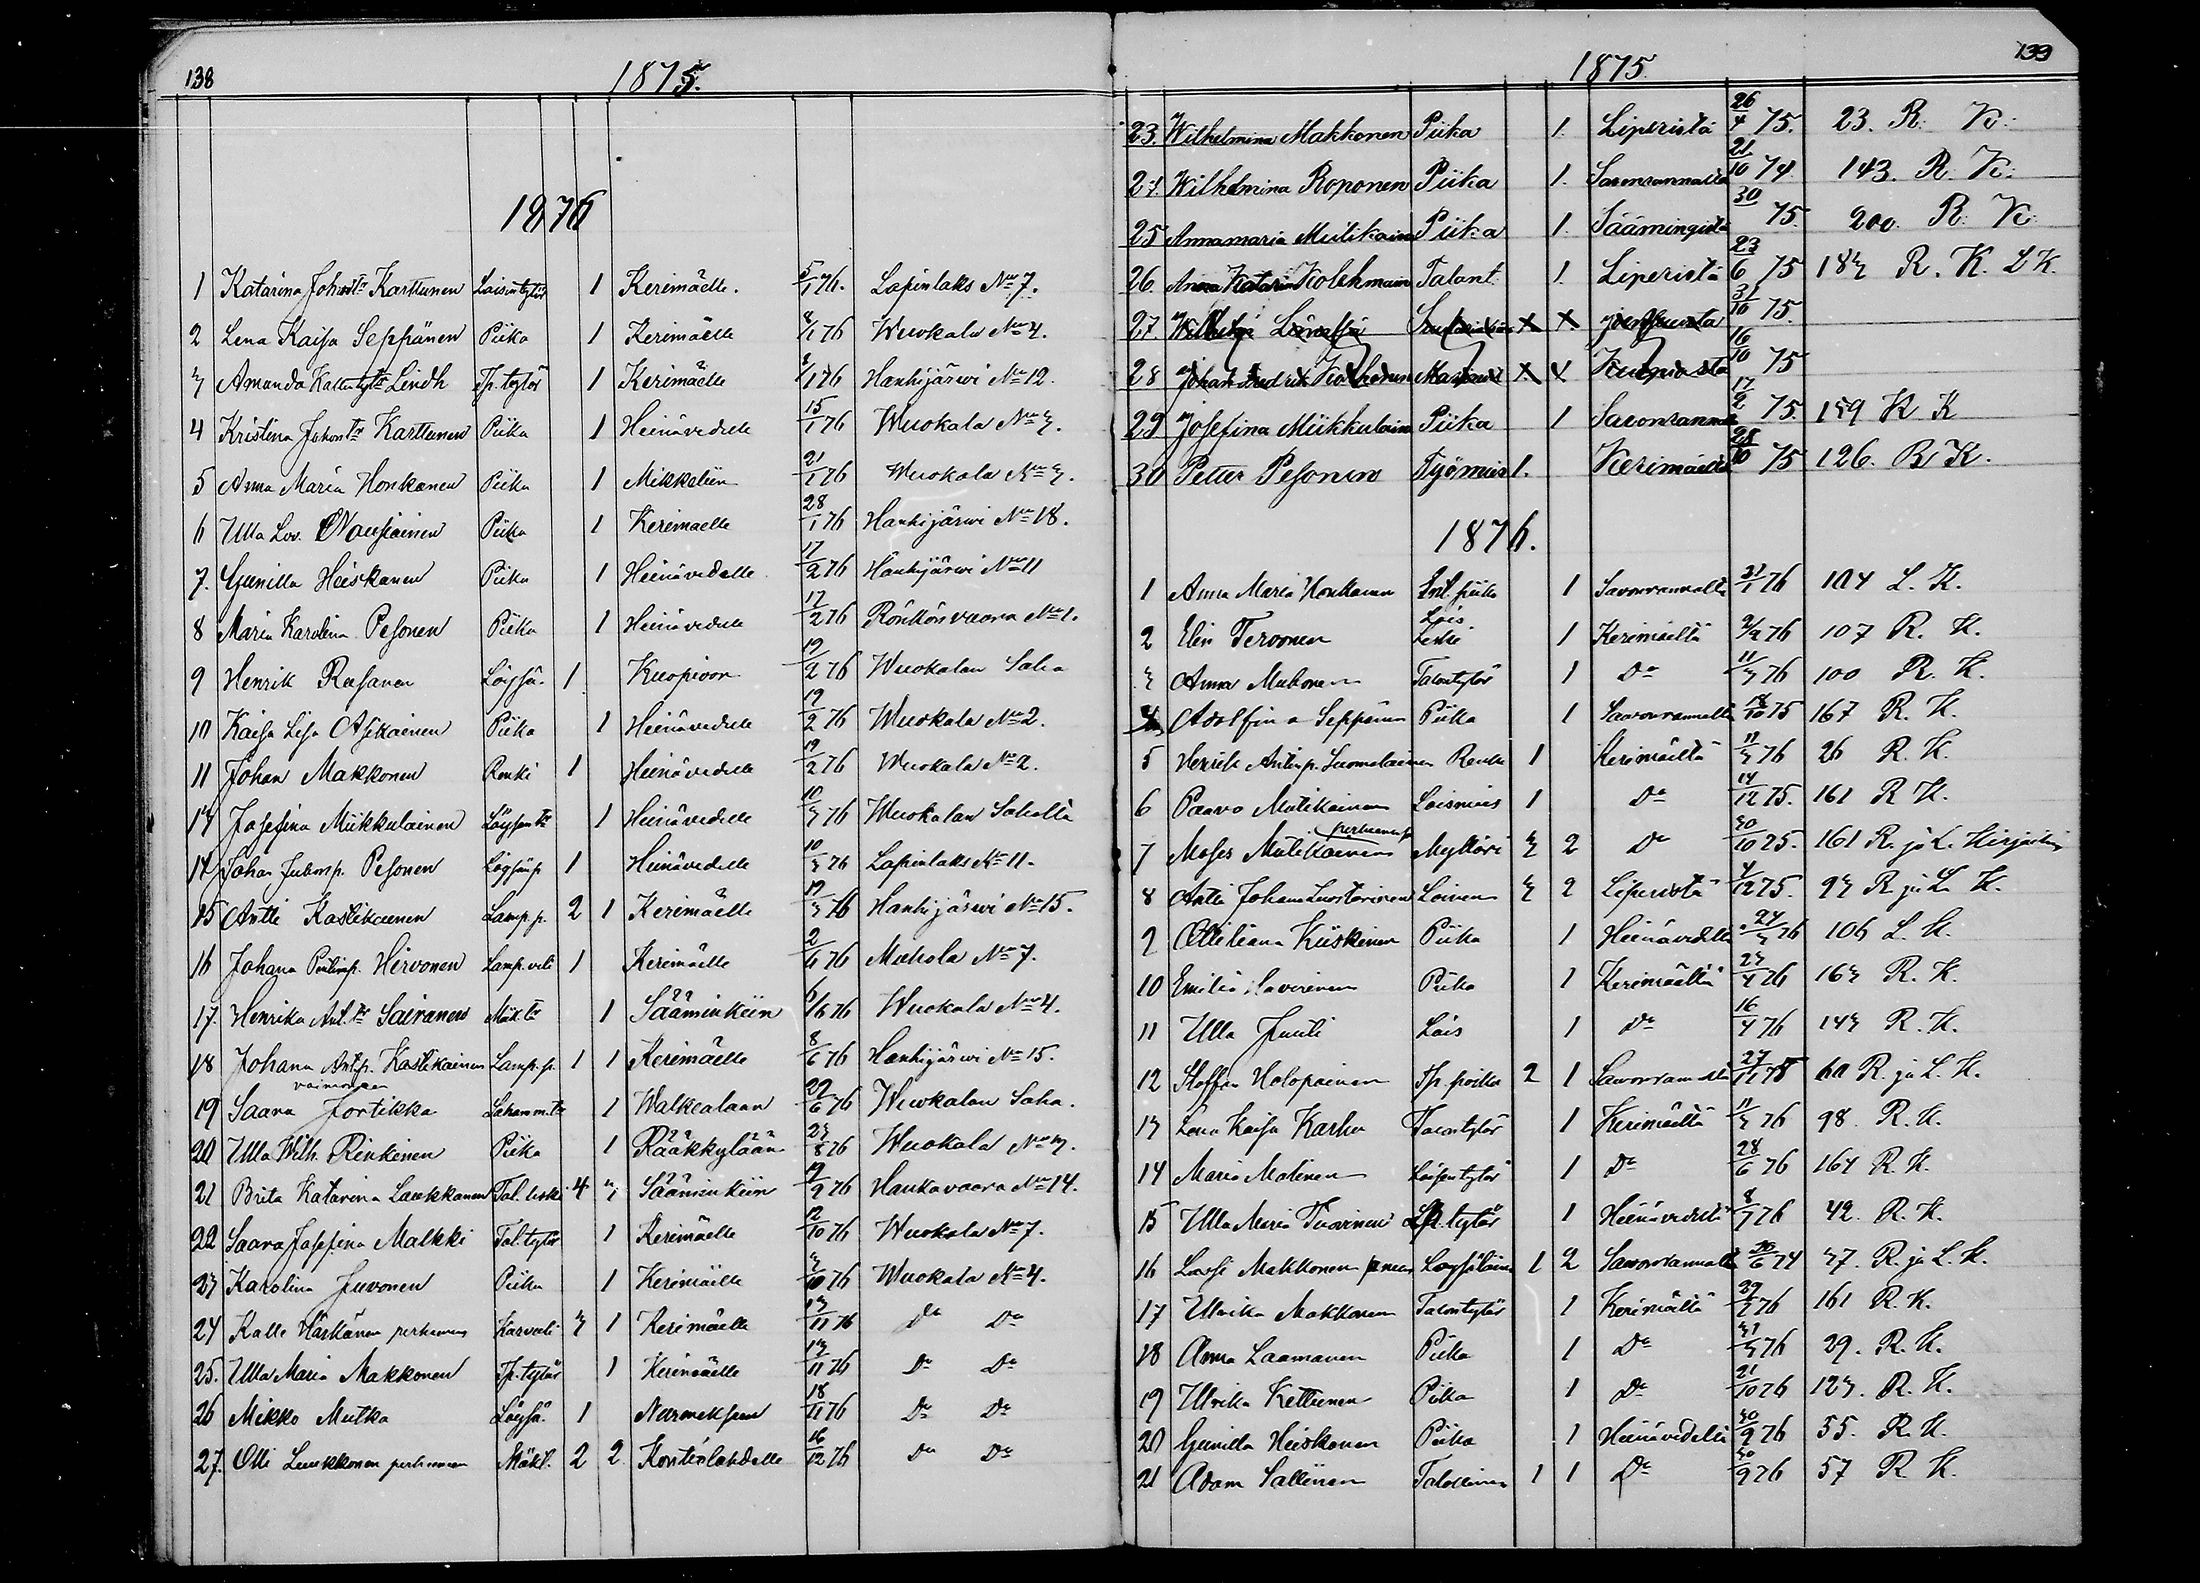 138
1875.
1876
1 Katarina Johantr Karttunen Loisentytör 1 Kerimäelle. 5/1 76. Lapinlaks No 7.
2 Lena Kaisa Seppänen Piika 1 Kerimäelle 8/1 76 Wuokala No 4.
3 Amanda Kallentytör Lindh Tp. tytör 1 Kerimäelle 8/1 76 Hanhijärwi No 12.
4 Kristina Johantr Karttunen Piika 1 Heinävedelle 15/1 76 Wuokala No 3.
5 Anna Maria Honkanen Piika 1 Mikkeliin 21/1 76 Wuokala No 3.
6 Ulla Lov. Nousiainen Piika 1 Kerimaelle 28/1 76 Hanhijärwi No 18.
7. Gunilla Heiskanen Piika 1 Heinävedelle 17/2 76 Hanhijärwi No 11
8 Maria Karolina Pesonen Piika 1 Heinävedelle 17/2 76 Rönkönvaara No 1.
9 Henrik Räsänen Löysä. 1 Kuopioon 19/2 76 Wuokalan Saha
10 Kaisa Lisa Asikainen Piika 1 Heinävedelle 19/2 76 Wuokala No 2.
11 Johan Makkonen Renki 1 Heinävedelle 19/2 76 Wuokala No 2.
13 Josefina Miikkulainen Löysäntr 1 Heinävedelle 10/3 76 Wuokalan Sahalta
14 Johan Juhonp. Pesonen Löysänp 1 Heinävedelle 10/3 76 Lapinlaks No 11.
15 Antti Kastikainen Lamp. p. 2 1 Kerimäelle 19/3 76 Hanhijärwi No 15.
16 Johana Hirvonen Lamp. veli 1 Kerimäelle 2/6 76 Makola No 7.
17. Henrika Ant. tr Sairanen Mäk tr 1 Sääminkiin 6/6 76 Wuokala No 4.
18 Johana Antp. Kastikainen Lamp. p. 1 1 Kerimäelle 8/6 76 Hanhijärwi No 15.
vaimonsa
19 Saara Jortikka 1 Walkealaan 22/6 76 Wuokalan Saha.
20 Ulla Wilh. Rinkinen Piika 1 Rääkkylään 23/8 76 Wuokala No 3.
21 Brita Katarina Laukkanen Tal. leski 4 3 Sääminkiin 19/9 76 Haukavaara No 14.
22 Saara Josefina Malkki Tal. tytör 1 Kerimäelle 12/10 76 Wuokala No 7.
23 Karolina Juvonen Piika 1 Kerimäelle 3/10 76 Wuokala No 4.
24 Kalle Härkänen perheineen 3 1 Kerimäelle 13/11 76 Do Do
25. Ulla Maria Makkonen Tp. tytör 1 Kerimäelle 13/11 76 Do Do
26 Mikko Mutka Löysä. 1 Nurmeksen 18/11 76 Do Do
27. Olli Luukkonen perheineen Mäkl. 2 2 Kontiolahdelle 16/12 76 Do Do
139
1875
23. Wilhelmina Makkonen Piika 1. Liperistä 26/4 75. 23. R. K.
24. Wilhelmina Roponen Piika 1. Savonrannalta 21/10 74. 143. R. K.
25 Annamaria Mutikainen Piika 1. Säämingistä 30 75. 200. R. K.
26. Anna Katarina Kolehmain Talont. 1. Liperistä 23/6 75 183 R. K. L K.
27. x x 31/10 75.
28 Johan Fredrik x x Kuopiosta 16/10 75
29 Josefina Miikkulain Piika 1 Savonrannalta 17/2 75. 159 R K
30 Petter Pesonen Työmies 1. Kerimäeltä 28/10 75 126. R K.
1876.
1 Anna Maria Honkanen Itsl. piika 1 Savonrannalta 31/1 76 104 L. K.
2 Elin Tervonen Lois. Leski 1 Kerimäeltä 2/2 76 107 R. K.
3 Anna Muhonen Talontytör 1 Do 11/3 76 100 R. K.
4 Adolfina Seppänen Piika 1 Savonrannalta 18/10 75 167 R. K.
5 Henrik Antinp. Suomalainen Renki 1 Kerimäeltä 17/3 76 26 R. K.
6 Paavo Mutikainen Loismies 1 Do 14/12 75. 161 R K.
7 Moses Mutikainen perheensä Mylläri 3 2 Do 30/10 75. 161 R. ja L. Kirja
8 Antti Johan Luostarinen Loinen 3 2 Liperistä 4/12 75. 93 R ja L. K.
9 Ottiliana Kiiskinen Piika 1 Heinävedeltä 24/3 76 106 L. K.
10 Emilia Savirinen Piika 1 Kerimäeltä 23/4 76 163 R. K.
11 Ulla Juuti Lois 1 Do 16/4 76 143 R. K.
12 Staffan Holopainen Tp. poika 2 1 Savonrannalta 27/11 75 60 R. ja L. K.
13 Lena Kaisa Karhu Talontytör 1 Kerimäeltä 11/3 76 98. R. K.
14 Maria Malinen Loisentytör 1 Do 28/6 76 164 R. K.
15 Ulla Maria Tuovinen tytär 1 Heinävedeltä 8/7 76 42. R. K.
16 Lassi Makkonen Löysäläinen 1 2 Savonrannalta 30/6 74 37. R. ja L. K.
17 Ulrika Makkonen Talontytör 1 Kerimäeltä 29/7 76 161 R. K.
18 Anna Laamanen Piika 1 Do 31/3 76 29. R. K.
19 Ulrika Kettunen Piika 1 Do 21/10 76 123. R. K.
20 Gunilla Heiskanen Piika 1 Heinävedeltä 30/9 76 55. R. K.
21 Adam Sallinen Talollinen 1 1 Do 30/9 76 57 R. K.